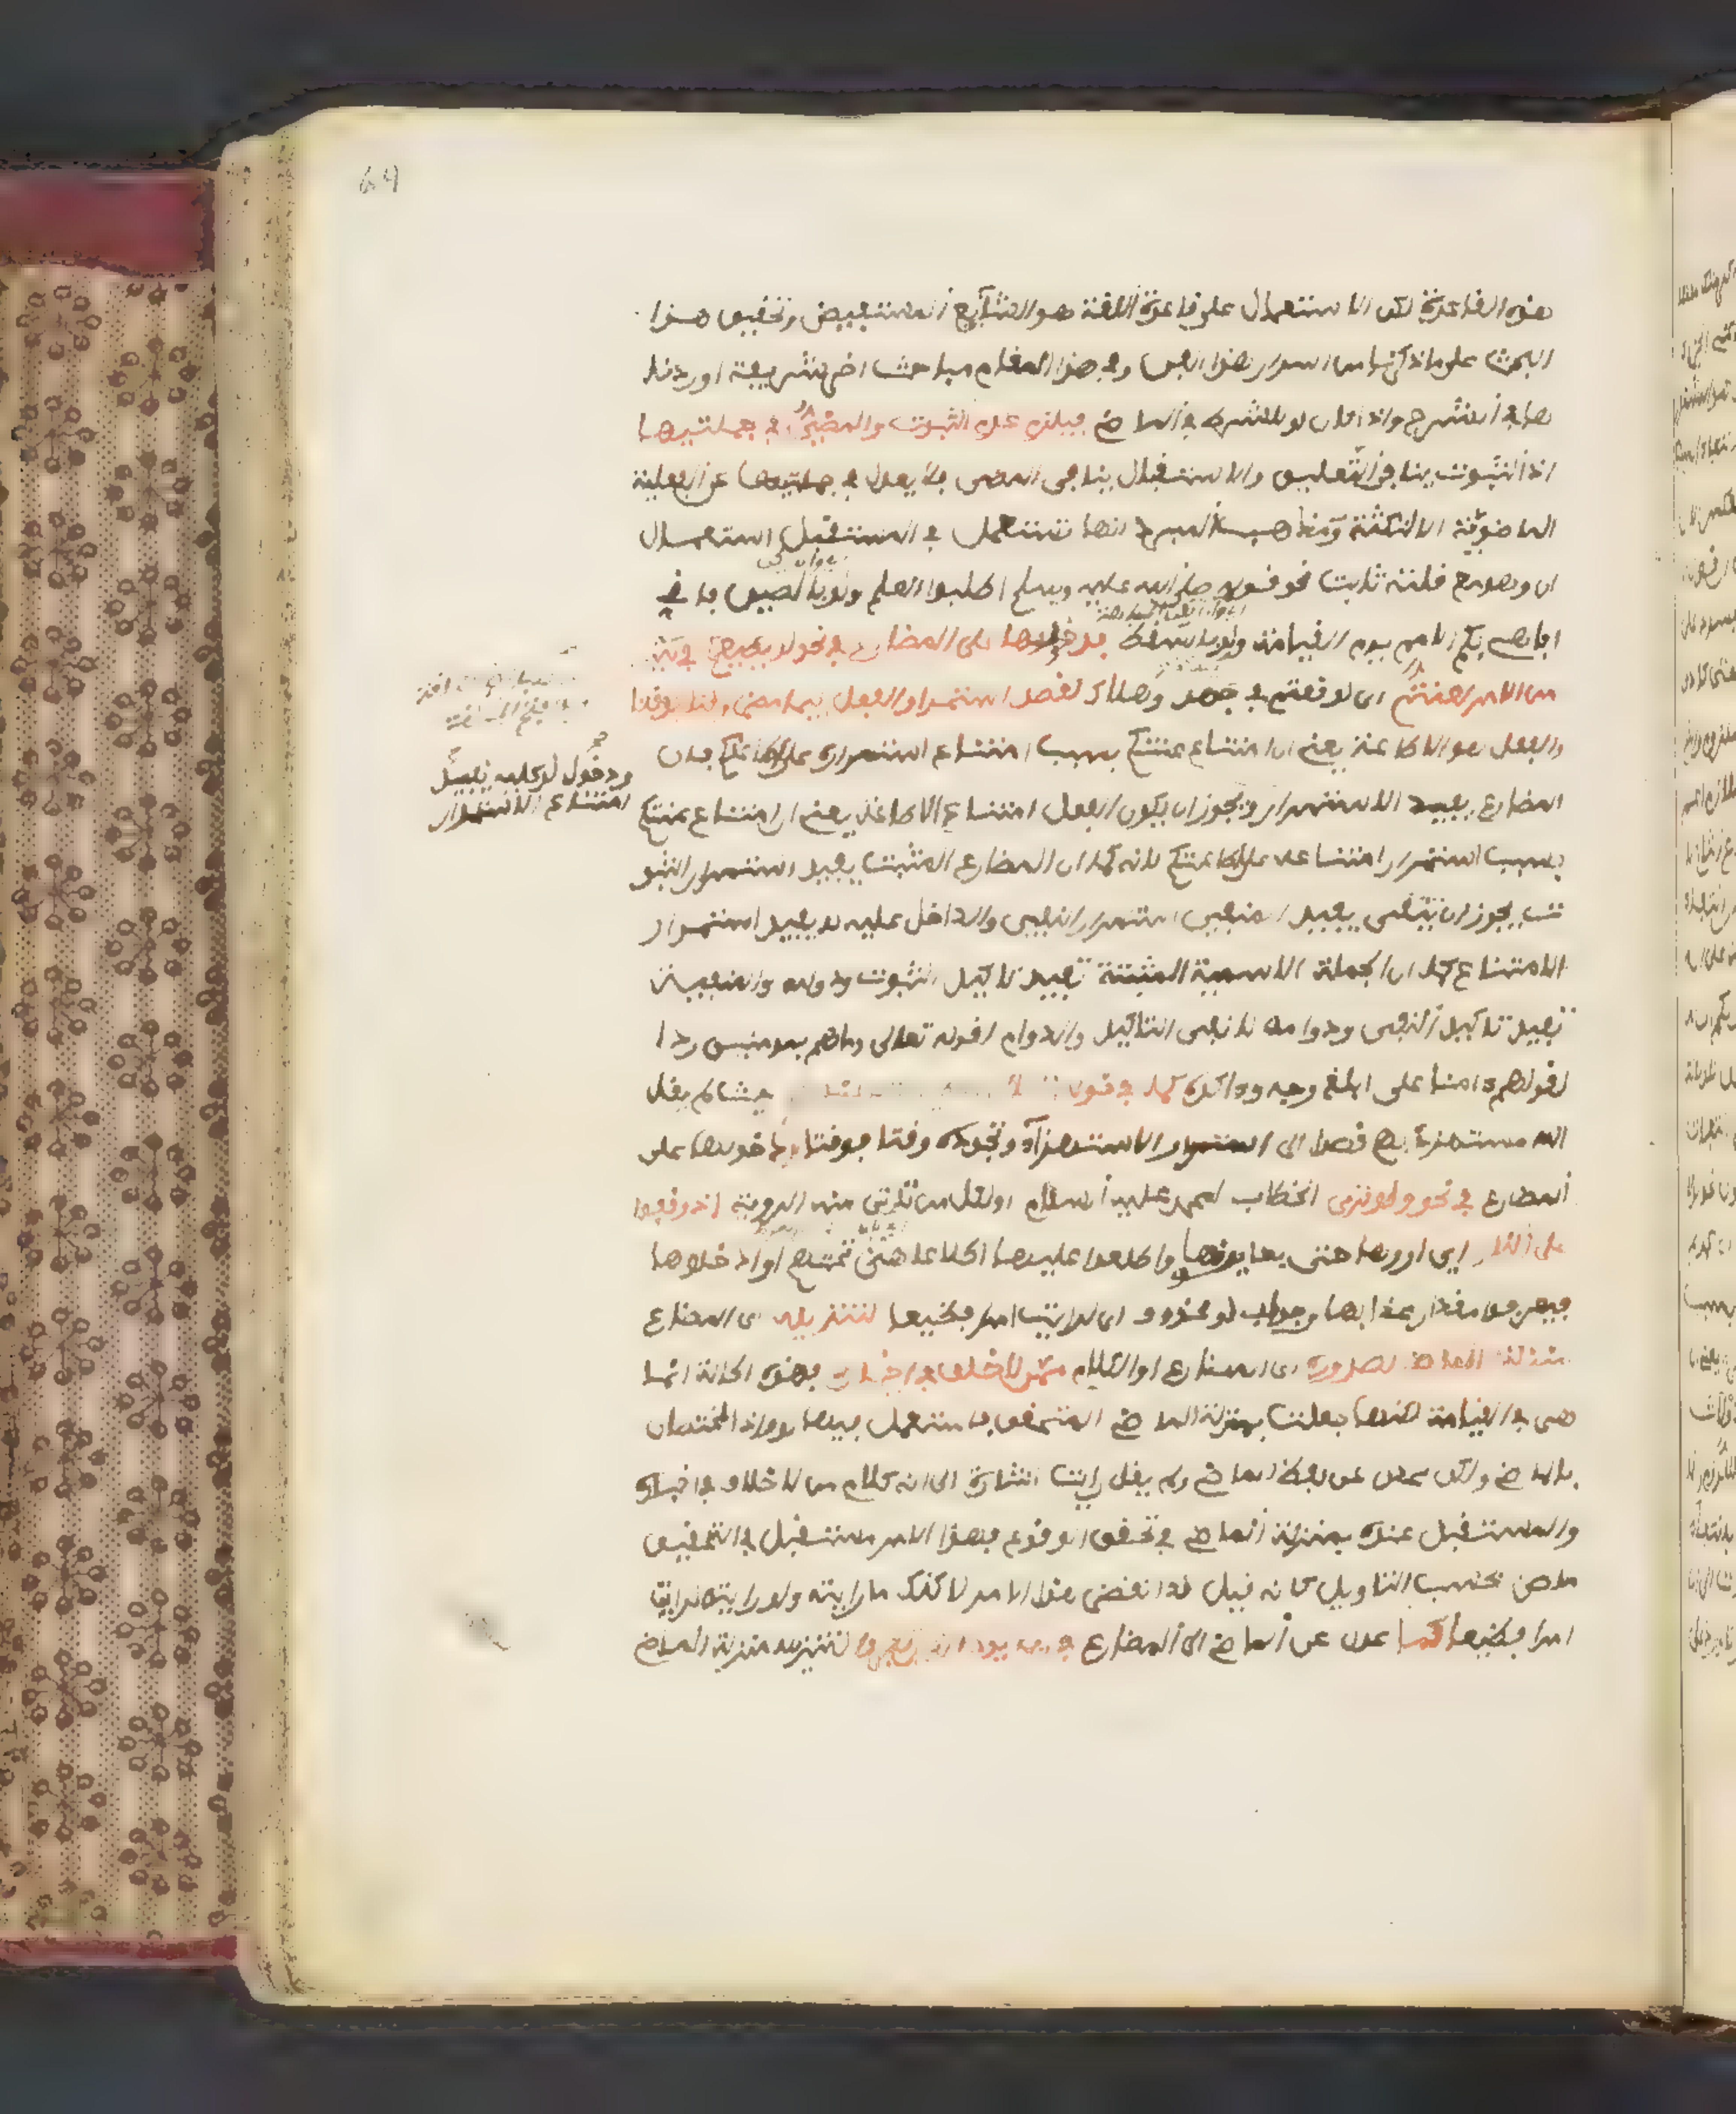 64
هذه القاعدة لكن الاستعمال على قاعدة اللغة هو الشايع المستفيض وتحقيق هذا
البحث على ما ذكرنا من اسرار هذا الفن وفي هذا المقام مباحث اخر شريفة اوردنا
ها في الشرح واذا كان لو للشرط في الماضي فيلزم عدم الثبوت والمضي في جملتيها
اذ الثبوت ينافي التعليق والاستقبال ينافي المضي فلا يعدل في جملتيها عن الفعلية
الماضوية الا لنكتة ومذهب المبرد انها تستعمل في المستقبل استعمال
ان وهو مع قلته ثابت نحو قوله صلى الله عليه وسلم اطلبوا العلم ولو بالصين فاني
اباهي بكم الامم يوم القيامة ولو بالسقط فدخولها على المضارع في نحو لو يطيعكم في كثير
من الامر لعنتم اي لوقعتم في جهد وهلاك لقصد استمرار الفعل فيما مضى وقتا فوقتا
والفعل هو الاطاعة يعني ان امتناع عنتكم بسبب امتناع استمراره على اطاعتكم فان
المضارع يفيد الاستمرار ويجوز ان يكون الفعل امتناع الاطاعة يعني ان امتناع عنتكم
ودخول لو عليه يفيد
امتناع الاستمرار
بسبب استمرار امتناعه على اطاعتكم لانه كما ان المضارع المثبت يفيد استمرار الثبو
ت يجوز ان يفيد المنفي استمرار النفي والداخل عليه لو يفيد استمرار
الامتناع كما ان الجملة الاسمية المثبتة تفيد تاكيد الثبوت ودوامه والمنفية
تفيد تاكيد النفي ودوامه لا نفي التاكيد والدوام لقوله تعالى وما هم بمومنين ردا
لقولهم امنا على ابلغ وجه وواكده كما في قوله حيث لم يقل
الله مستهزئ بهم قصدا الى استمرار الاستهزاء وتجدده وقتا فوقتا ودخولها على
المضارع في نحو ولو ترى الخطاب لمحمد عليه السلام او لكل من تتاتى منه الروية اذ وقفوا
على النار اي اروها حتى يعاينوها واطلعوا عليها اطلاعا هي تحتهم او ادخلوها
فيعرفوا مقدار عذابها وجواب لو محذوف اي لرايت امرا فظيعا لتنزيله اي المضارع
منزلة الماضي لصدوره اي المضارع او الكلام عمن لا خلاف في اخباره فهذه الحالة انما
هي في القيامة لكنها جعلت بمنزلة الماضي المتحقق فاستعمل فيها لو واذ المختصان
بالماضي ولكن عدل عن لفظ الماضي ولم يقل رايت اشارة الى انه كلام من لا خلاف في اخباره
والمستقبل عنده بمنزلة الماضي في تحقق الوقوع فهذا الامر مستقبل في التحقيق
ماض بحسب التاويل كانه قيل قد انقضى هذا الامر لاكنك ما رايته ولو رايته لرايت
امرا فظيعا كما عدل عن الماضي الى المضارع في ربما يود الذين كفروا لتنزيله منزلة الماضي